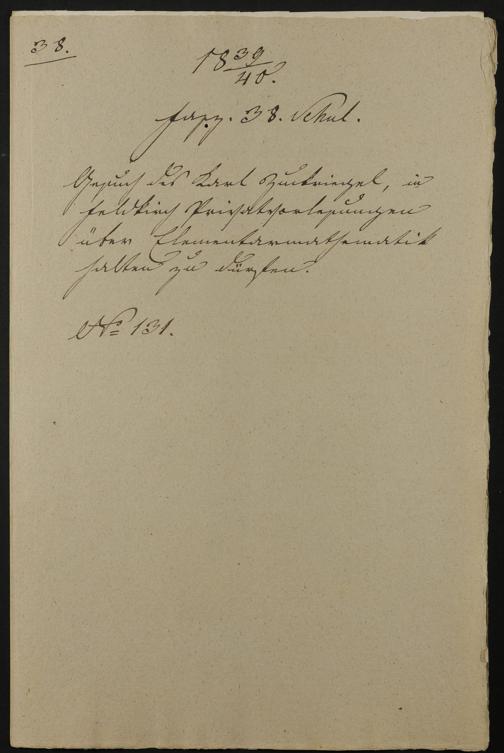 38.
1839/40.
Fasz. 38. Schul.
Gesuch des Karl Zuckriegel, in
Feldkirch Privatvorlesungen
über Elementarmathematik
halten zu dürfen.
No 131.